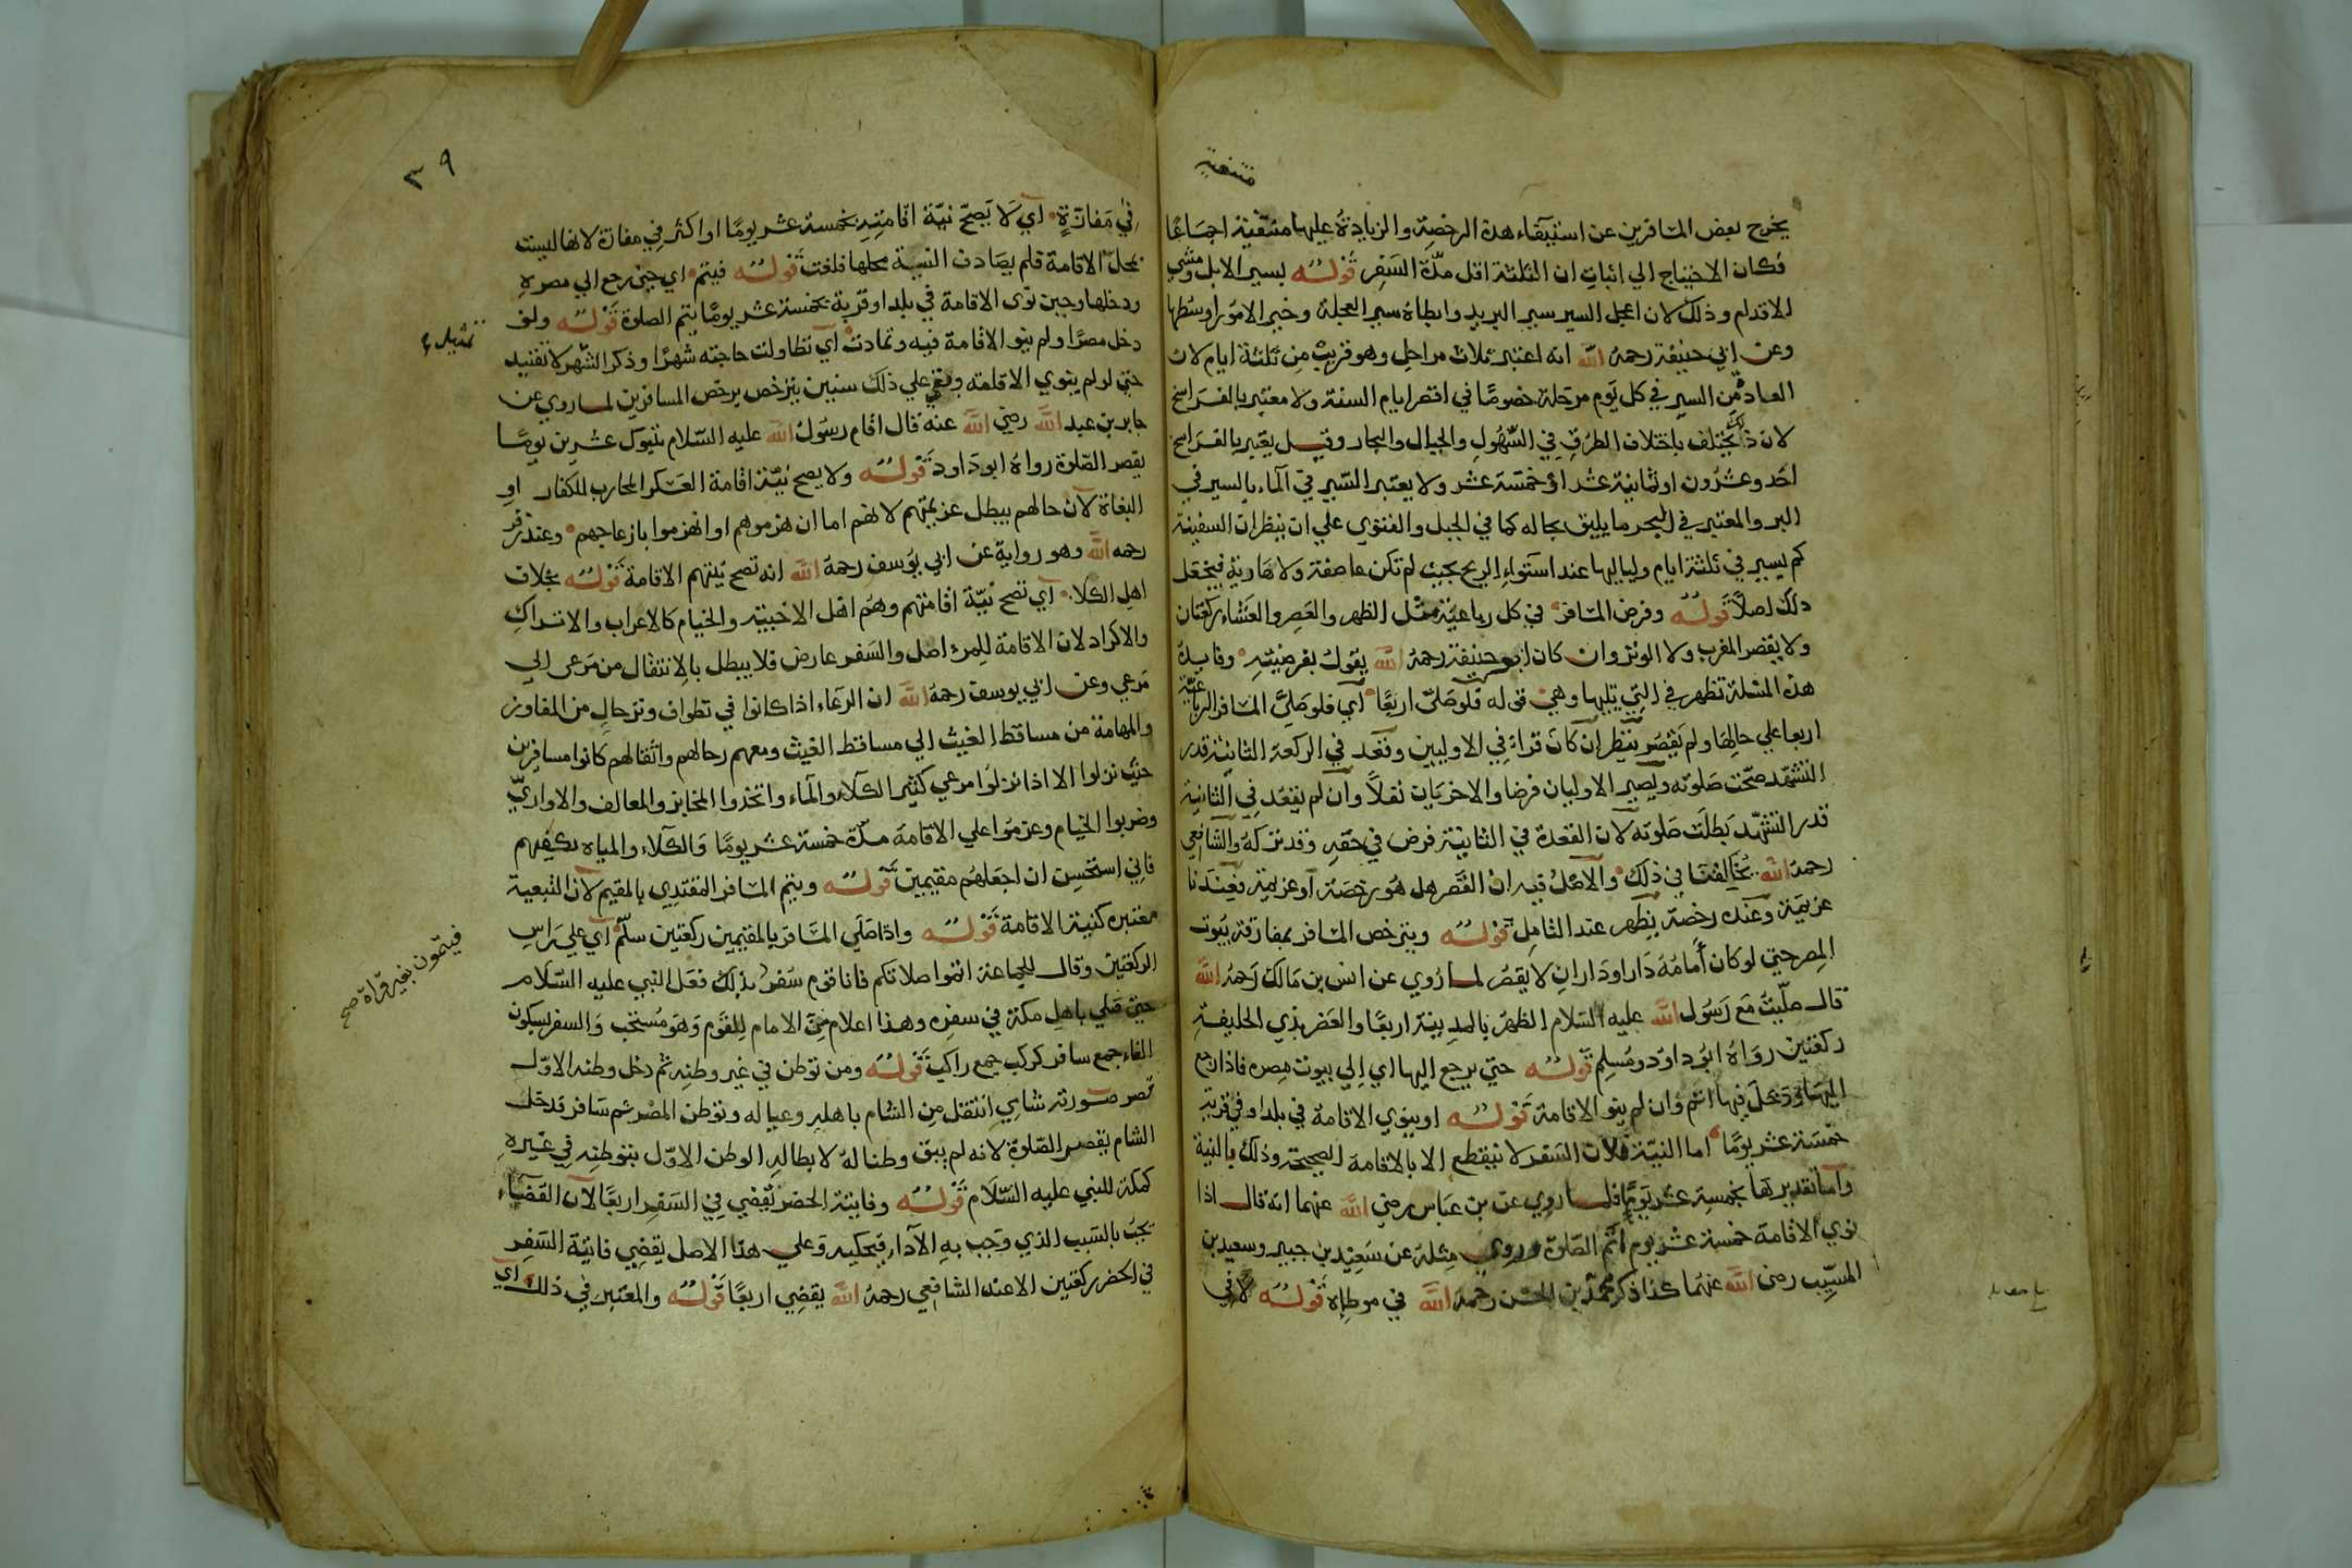 منتفية
يخرج بعض المسافرين عن استيفاء هذه الرخصة والزيادة عليها منتفية اجماعا
فكان الاحتياج الي اثبات ان الثلثة اقل مدّة السَفر قولـــه بسير الابل ومشي
الاقدام وذلك لان اعجل السير سير البريد وابطاه سير العجلة وخير الامور اوسطها
وعن ابي حنيفة رحمهُ الله انه اعتبر ثلاث مراحل وهو قريبٌ مِن ثلثة ايام لان
المعتاد من السير في كل يَوم مرحلة خصوصًا في اقصر ايام السنة ولا معتبر بالفراسخ
لان ذلك يختلف باختلاف الطرُق في السّهول والجبال والبحار وقيـل يعتبر بالفراسخ
احَد وعشرُون او ثمانية عشر او خمسَة عشر ولا يعتبر السّير في آلماء بالسير في
البر والمعتبر في البحر ما يليق بحاله كما في الجبل والفتوي علي ان ينظر ان السفينة
كم يسير في ثلثة ايام ولياليها عند استواء الريح بحيث لم تكن عاصفة ولا هَادية فيجعَل
ذلك اصلاً قولـــه وفرض المسَافر في كل رباعيّة مثل الظهر والعَصِر والعشَاء ركعتان
ولا يقصر المغرب ولا الوتر وان كان ابو حنيفة رحمهُ الله يقولُ بفرضيّتهِ وفايدة
هذه المسئلة تظهر في التي تليها وهي قوله فلو صَلّى اربعًا آي فلو صَلّيَ المسَافر الرباعيّة
اربعا علي حالها ولم يَقصر ينظر ان كانَ قراءَ في الاوليين وقَعَد في الركعة الثانيَة قدر
التشهّد صَحّت صَلوته ويَصير الاوليان فرضا والاخريَان نفلاً وآن لم يقعُد في الثانية
قدر التشهّد بَطلَت صَلوته لان القعدة في الثانية فرض في حَقّهِ وقد تركهُ والشافعي
رحمهُ الله يُخَالفنا في ذلك والآصلُ فيه انّ القَصر هل هُو رخصَة آو عزيمة فَعِندَنا
عزيمَة وعنده رخصَة يظهر عند التامِل قولـــه ويترخص المسافر بمفارقة بيُوت
المِصر حتي لو كان أَمامُهُ دَار اودَاران لا يقصُر لمـا رُوي عن انس بن مَالك رَحمهُ الله
قالـ صلّيتُ مَع رَسُول الله عليه السّلام الظهرَ بالمدينة اربعًا والعَصر بذي الحليفة
ركعتين روَاهُ ابوُ داوُد ومُسلِم قولـــه حتي يرجع اليها اي اِلي بيوت مِصره فاذا رجع
اليهَا ودَخلَ فيها اتم وان لم ينو الاقامة قولـــه او ينوي الاقامة في بلد او في قرية
خمسَة عشر يومًا اما النيّة فلان السَفر لا ينقطع الا بالاقامة الصحيحة وذلك بالنية
وآما تقديرها بخمسة عشر يَومًا فلمـا روي عن بن عَباس رضي الله عنهما انه قالـ اذا
نوي الاقامة خمسة عشر يوم اتم الصّلوة وروي مثلهُ عن سَعِيْد بن جبير وسعيد بن
المسيّب رضي الله عنهُما كذا ذكر محمّد بن الحسَن رحمهُ الله في موطاه قولـــه لا في
٣٩
في مَفازةٍ آي لا يَصحّ نيّة اقامتِهِ خمسة عشر يومًا او اكثر في مفازة لانها ليست
بمحلّ الاقامة فلم يصَادف النية محلها فلغت قولـــه فيتم اي حِين رجع الي مصره
ودخلها وحين نوَى الاقامة في بلد او قرية خمسة عشر يومًا يتم الصلوة قولـــه ولو
دخل مصرًا ولم ينو الاقامة فيه وتمادت آي تطاولت حاجته شهرًا وذكر الشّهر لا تقييد
حتي لو لم ينوي الاقامة وبقي علي ذلك سنين يترخص برخص المسافرين لمـا روي عن
جابر بن عبد الله رضي الله عنه قال اقام رسُولُ الله عليه السّلام بتبوك عشرين يومًا
يقصر الصّلوة رواهُ ابو دَاود قولـــه ولا يصح نيّة اقامة العَسكر المحارب للكفار او
البغاة لآن حالهم يبطل عزيمتهم لانهم اما ان هزموهم او انهزموا بازعاجهم وعند زفر
رحمه الله وهو رواية عن ابي يوُسف رحمهُ الله انه تصح نيتهم الاقامة قولـــه بخلاف
اهل الكلاء آي تصح نيّة اقامتهم وهُم اهْل الاخبية والخيام كالاعراب والاتراك
والاكراد لان الاقامة للِمرء اصل والسَفر عارض فلا يبطل بالِانتقال من مَرعى الي
مَرعي وعن ابي يوسف رحمهُ الله ان الرعَاء اذا كانوا في تطواف وترحال من المفاوز
والمهامة من مساقط الغيث الي مساقط الغيث ومعهم رحالهم واثقالهم كانوا مسافرين
حيث نزلوا الا اذا نزلوُا مرعي كثير الكلاء والمآء واتخذوا المخابز والمعالف والاواريّ
وضربوا الخيام وعزموُا علي الاقامة مدّة خمسة عشر يومًا وَالكلاء والمياه يكفيهم
فاني استحسِن ان اجعَلهُم مقيمين قولـــه ويتم المسَافر المقتدِي بالمقيم لآن التبعية
معتبرة كنية الاقامة قولـــه واذا صَلَي المسَافر بالمقيمين ركعتين سلّم آي علي رَاس
الركعتين وقالـ للجماعة اتموا صلاتكم فانا قوم سَفر بذلك فعَل النبي عليه السّلام
حين صَلي باهل مكة في سفره وهذا اعلام مِنَ الامام لِلقَوم وَهوَ مُستحَب وَالسفر بسكون
الفاء جمع سافر كركب جمع راكب قولـــه ومن توطن في غير وطنه ثم دخل وطنه الاوّل
قصر صورته شامي اِنتقل مِن الشام باهله وعياله وتوطن المصْر ثم سَافر فدخل
الشام يقصر الصّلوة لانه لم يبق وطنا لهُ لا بطاله الوطن الاوّل بتوطنه في غيرهِ
كمكة للنبي عليه السّلام قولـــه وفايتة الحضر تُقضي في السَفر اربعًا لآن القضَاء
يجبُ بالسَبب الذي وجَب بهِ الآداء فيحكيه وَعلي هذا الاصل يقضي فايتة السَفر
في الحضر ركعتين الا عند الشافعي رحمهُ الله يقضي اربعًا قولـــه والمعتبر في ذلك اي
فيتمّون بغير قراة صح